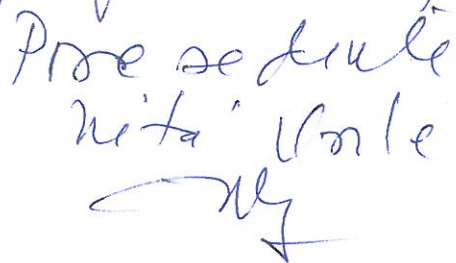 Presedinte
Nită Vasile